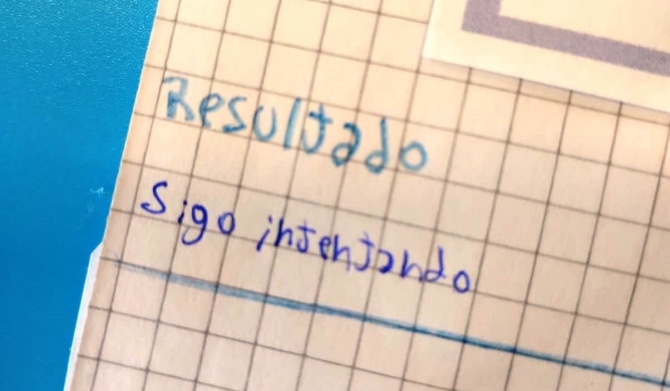 Resultado
Sigo intentando